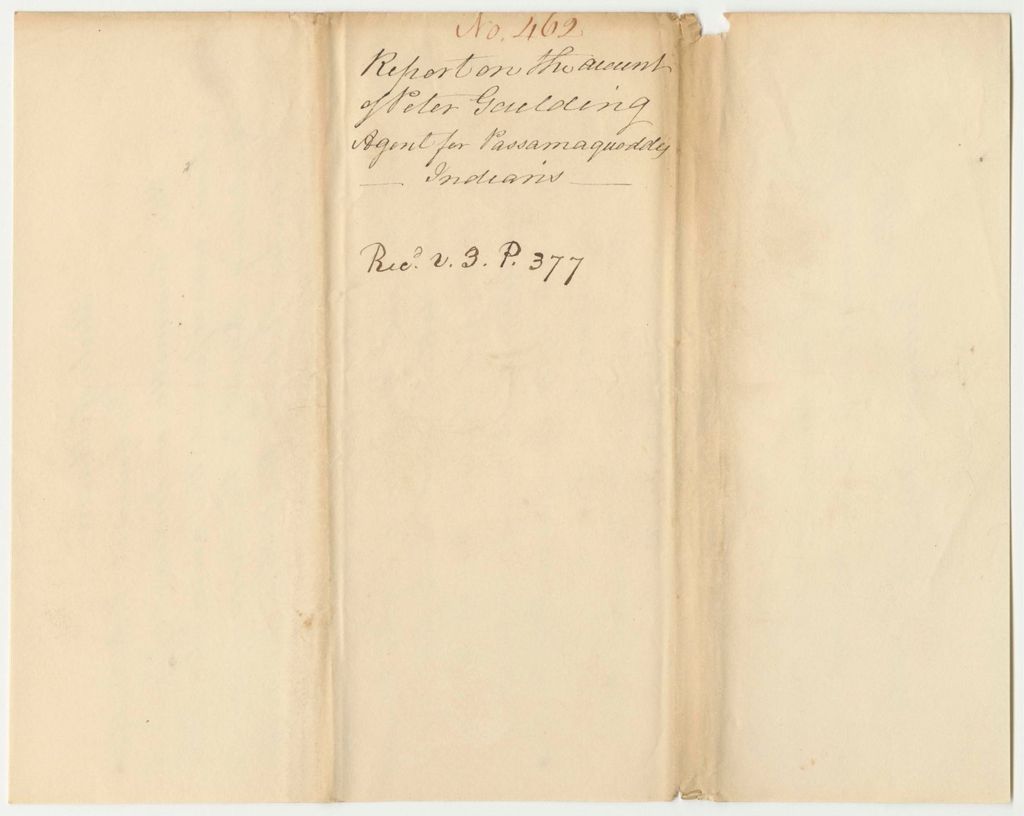 No. 462
Report on the account
of Peter Goulding
Agent for Passamaquoddy
— Indians —
Recd. v. 3. P. 377